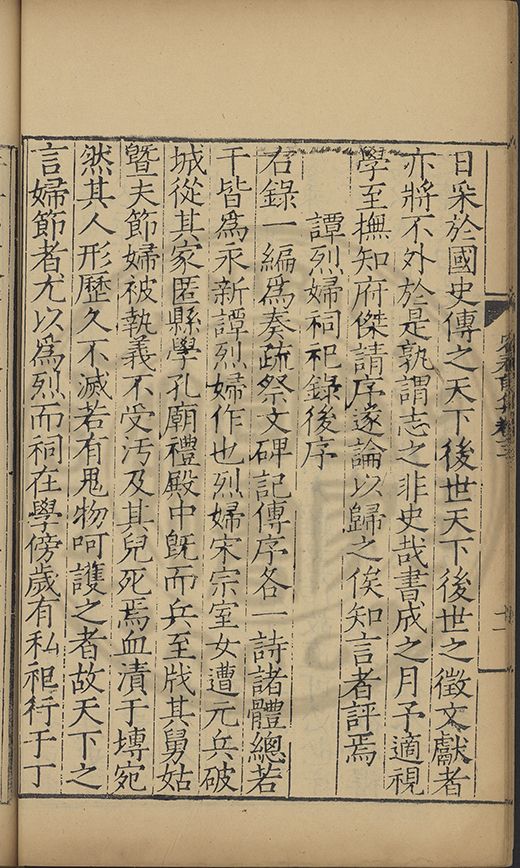 日采於國史傳之天下後世天下後世之徵文獻者
亦將不外於是孰謂志之非史哉書成之月予適視
學至撫知府傑請序遂論以歸之俟知言者評焉
譚烈婦祠祀錄後序
右錄一編爲奏疏祭文碑記傳序各一詩諸體總若
干皆爲永新譚烈婦作也烈婦宋宗室女遭元兵破
城從其家匿縣學孔廟禮殿中旣而兵至戕其舅姑
曁夫節婦被執義不受汚及其兒死焉血漬于塼宛
然其人形歷久不滅若有鬼物呵護之者故天下之
言婦節者尤以爲烈而祠在學傍歲有私祀行于丁